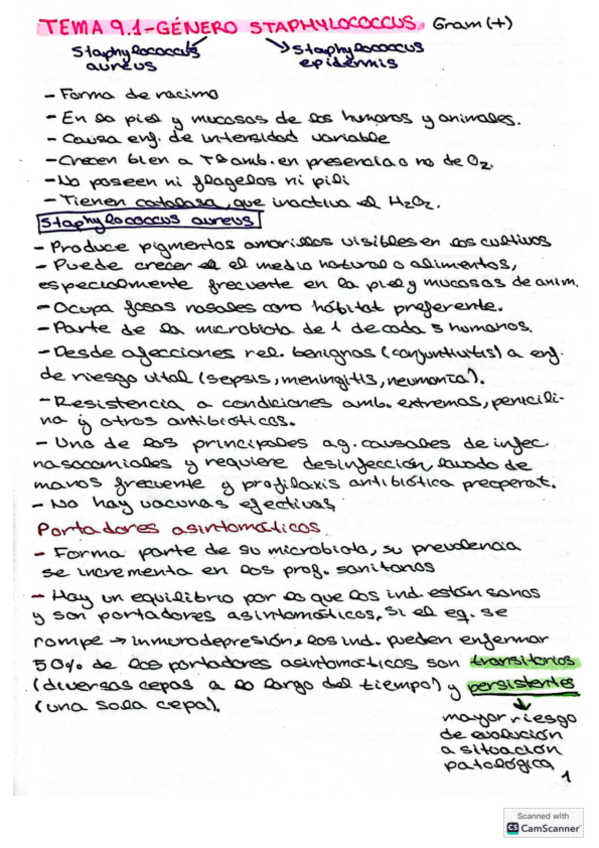 TEMA 9.1-GÉNERO STAPHYLOCOCCUS. Gram (+)
Staphylococcus aureus
Staphylococcus epidermis
- Forma de racimo
- En la piel y mucosas de los humanos y animales.
- Causa enf. de intensidad variable
- Crecen bien a Tª amb. en presencia o no de O2.
- No poseen ni flagelos ni pili
- Tienen catalasa, que inactiva el H2O2.
Staphylococcus aureus
- Produce pigmentos amarillos visibles en los cultivos
- Puede crecer el medio natural o alimentos,
especialmente frecuente en la piel y mucosas de anim.
- Ocupa fosas nasales como hábitat preferente.
- Parte de la microbiota de 1 de cada 5 humanos.
- Desde afecciones rel. benignas (conjuntivitis) a enf.
de riesgo vital (sepsis, meningitis, neumonía).
- Resistencia a condiciones amb. extremas, penicili-
na y otros antibióticos.
- Uno de los principales ag. causales de infec.
nasocomiales y requiere desinfección, lavado de
manos frecuente y profilaxis antibiótica preoperat.
- No hay vacunas efectivas
Portadores asintomáticos
- Forma parte de su microbiota, su prevalencia
se incrementa en los prof. sanitarios
- Hay un equilibrio por lo que los ind. están sanos
y son portadores asintomáticos, si el eq. se
rompe → inmunodepresión, los ind. pueden enfermar
50% de los portadores asintomáticos son transitorios
(diversas cepas a lo largo del tiempo) y persistentes
(una sola cepa).
mayor riesgo
de evolución
a situación
patológica
1
Scanned with
CS CamScanner